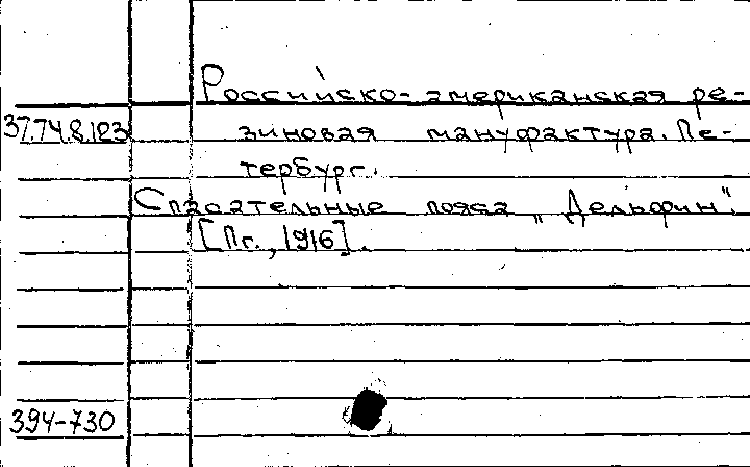 Российско-американская ре-
37.74.8.123
зиновая мануфактура. Пе-
тербург.
Спасательные пояса „Дельфин".
[Пг., 1916].
394-730